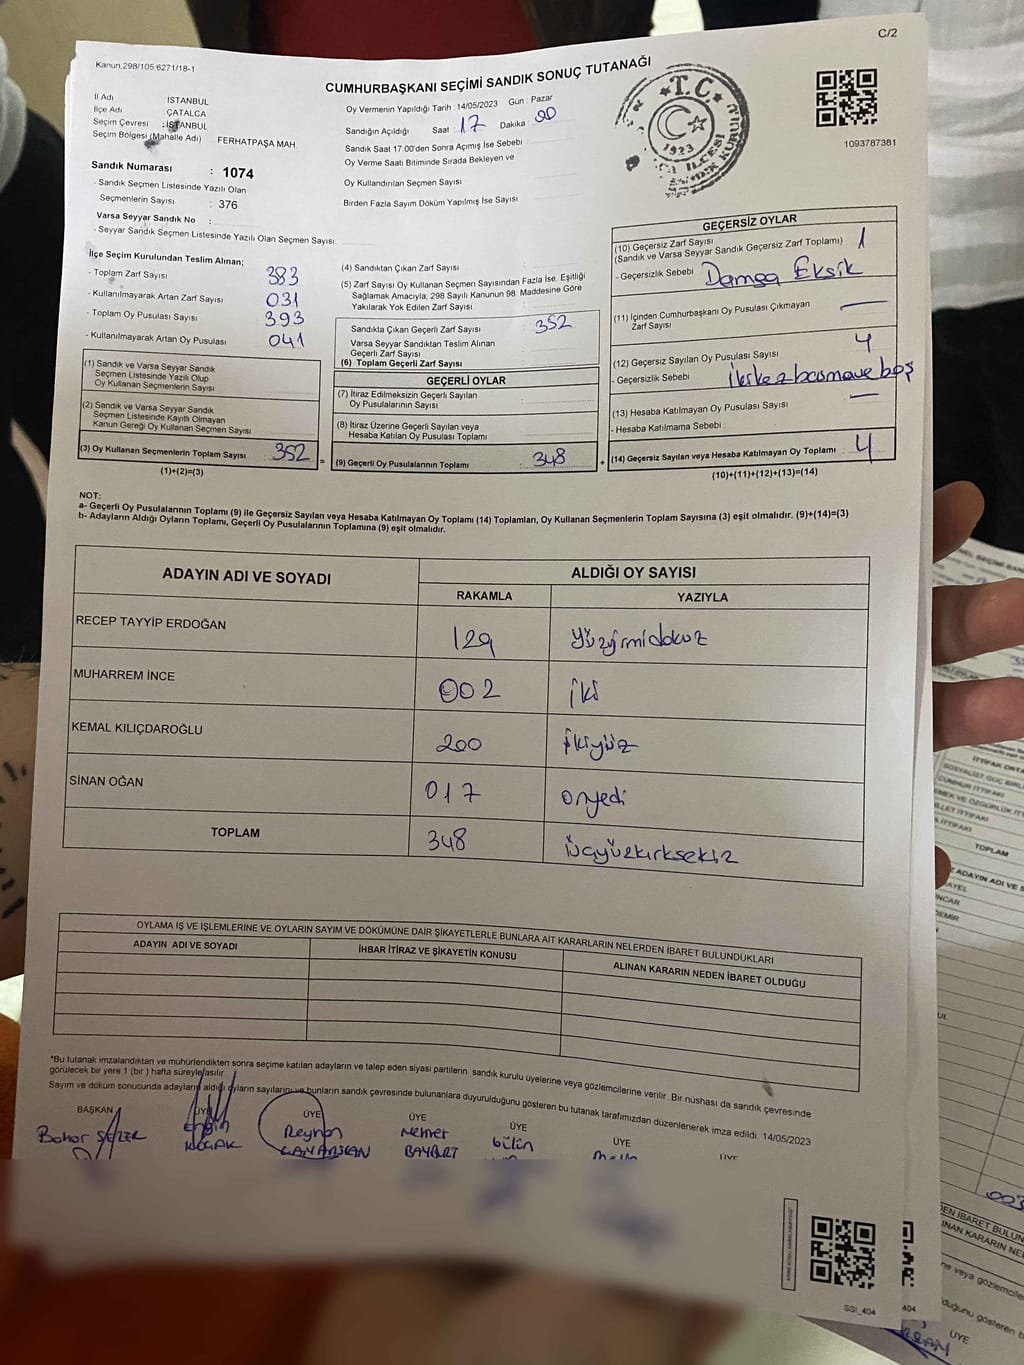 C/2
Kanun 298/105 6271/18-1
CUMHURBAŞKANI SEÇİMİ SANDIK SONUÇ TUTANAĞI
İl Adı İSTANBUL
İlçe Adı ÇATALCA
Seçim Çevresi : İSTANBUL
Seçim Bölgesi (Mahalle Adı) FERHATPAŞA MAH.
Sandık Numarası : 1074
- Sandık Seçmen Listesinde Yazılı Olan
Seçmenlerin Sayısı : 376
Varsa Seyyar Sandık No :
- Seyyar Sandık Seçmen Listesinde Yazılı Olan Seçmen Sayısı:
Oy Vermenin Yapıldığı Tarih : 14/05/2023 Gün : Pazar
Sandığın Açıldığı Saat : 17 Dakika : 00
Sandık Saat 17:00'den Sonra Açımış İse Sebebi
Oy Verme Saati Bitiminde Sırada Bekleyen ve
Oy Kullandırılan Seçmen Sayısı
Birden Fazla Sayım Döküm Yapılmış İse Sayısı
T.C.
1923
1093787381
İlçe Seçim Kurulundan Teslim Alınan;
- Toplam Zarf Sayısı 383
- Kullanılmayarak Artan Zarf Sayısı 031
- Toplam Oy Pusulası Sayısı 393
- Kullanılmayarak Artan Oy Pusulası 041
(1) Sandık ve Varsa Seyyar Sandık
Seçmen Listesinde Yazılı Olup
Oy Kullanan Seçmenlerin Sayısı
(2) Sandık ve Varsa Seyyar Sandık
Seçmen Listesinde Kayıtlı Olmayan
Kanun Gereği Oy Kullanan Seçmen Sayısı
(3) Oy Kullanan Seçmenlerin Toplam Sayısı 352
(1)+(2)=(3)
(4) Sandıktan Çıkan Zarf Sayısı
(5) Zarf Sayısı Oy Kullanan Seçmen Sayısından Fazla İse, Eşitliği
Sağlamak Amacıyla, 298 Sayılı Kanunun 98. Maddesine Göre
Yakılarak Yok Edilen Zarf Sayısı
Sandıkta Çıkan Geçerli Zarf Sayısı 352
Varsa Seyyar Sandıktan Teslim Alınan
Geçerli Zarf Sayısı
(6) Toplam Geçerli Zarf Sayısı
GEÇERLİ OYLAR
(7) İtiraz Edilmeksizin Geçerli Sayılan
Oy Pusulalarının Sayısı
(8) İtiraz Üzerine Geçerli Sayılan veya
Hesaba Katılan Oy Pusulası Toplamı
(9) Geçerli Oy Pusulalarının Toplamı 348
GEÇERSİZ OYLAR
(10) Geçersiz Zarf Sayısı 1
(Sandık ve Varsa Seyyar Sandık Geçersiz Zarf Toplamı)
- Geçersizlik Sebebi Damga Eksik
(11) İçinden Cumhurbaşkanı Oy Pusulası Çıkmayan
Zarf Sayısı —
(12) Geçersiz Sayılan Oy Pusulası Sayısı 4
- Geçersizlik Sebebi boş
(13) Hesaba Katılmayan Oy Pusulası Sayısı —
- Hesaba Katılmama Sebebi
(14) Geçersiz Sayılan veya Hesaba Katılmayan Oy Toplamı 4
(10)+(11)+(12)+(13)=(14)
NOT:
a- Geçerli Oy Pusulalarının Toplamı (9) ile Geçersiz Sayılan veya Hesaba Katılmayan Oy Toplamı (14) Toplamları, Oy Kullanan Seçmenlerin Toplam Sayısına (3) eşit olmalıdır. (9)+(14)=(3)
b- Adayların Aldığı Oyların Toplamı, Geçerli Oy Pusulalarının Toplamına (9) eşit olmalıdır.
ADAYIN ADI VE SOYADI ALDIĞI OY SAYISI
RAKAMLA YAZIYLA
RECEP TAYYİP ERDOĞAN 129 yüzyirmidokuz
MUHARREM İNCE 002 iki
KEMAL KILIÇDAROĞLU 200 ikiyüz
SİNAN OĞAN 017 onyedi
TOPLAM 348 üçyüzkırksekiz
OYLAMA İŞ VE İŞLEMLERİNE VE OYLARIN SAYIM VE DÖKÜMÜNE DAİR ŞİKAYETLERLE BUNLARA AİT KARARLARIN NELERDEN İBARET BULUNDUKLARI
ADAYIN ADI VE SOYADI İHBAR İTİRAZ VE ŞİKAYETİN KONUSU ALINAN KARARIN NEDEN İBARET OLDUĞU
*Bu tutanak imzalandıktan ve mühürlendikten sonra seçime katılan adayların ve talep eden siyasi partilerin sandık kurulu üyelerine veya gözlemcilerine verilir. Bir nüshası da sandık çevresinde
görülecek bir yere 1 (bir ) hafta süreyle asılır.
Sayım ve döküm sonucunda adayların aldığı oyların sayılarını ve bunların sandık çevresinde bulunanlara duyurulduğunu gösteren bu tutanak tarafımızdan düzenlenerek imza edildi. 14/05/2023
BAŞKAN ÜYE ÜYE ÜYE ÜYE ÜYE ÜYE
Engin Reyhan Mehmet Gülin
BAYBURT
SSI_404
404
TOPLAM
ÜYE